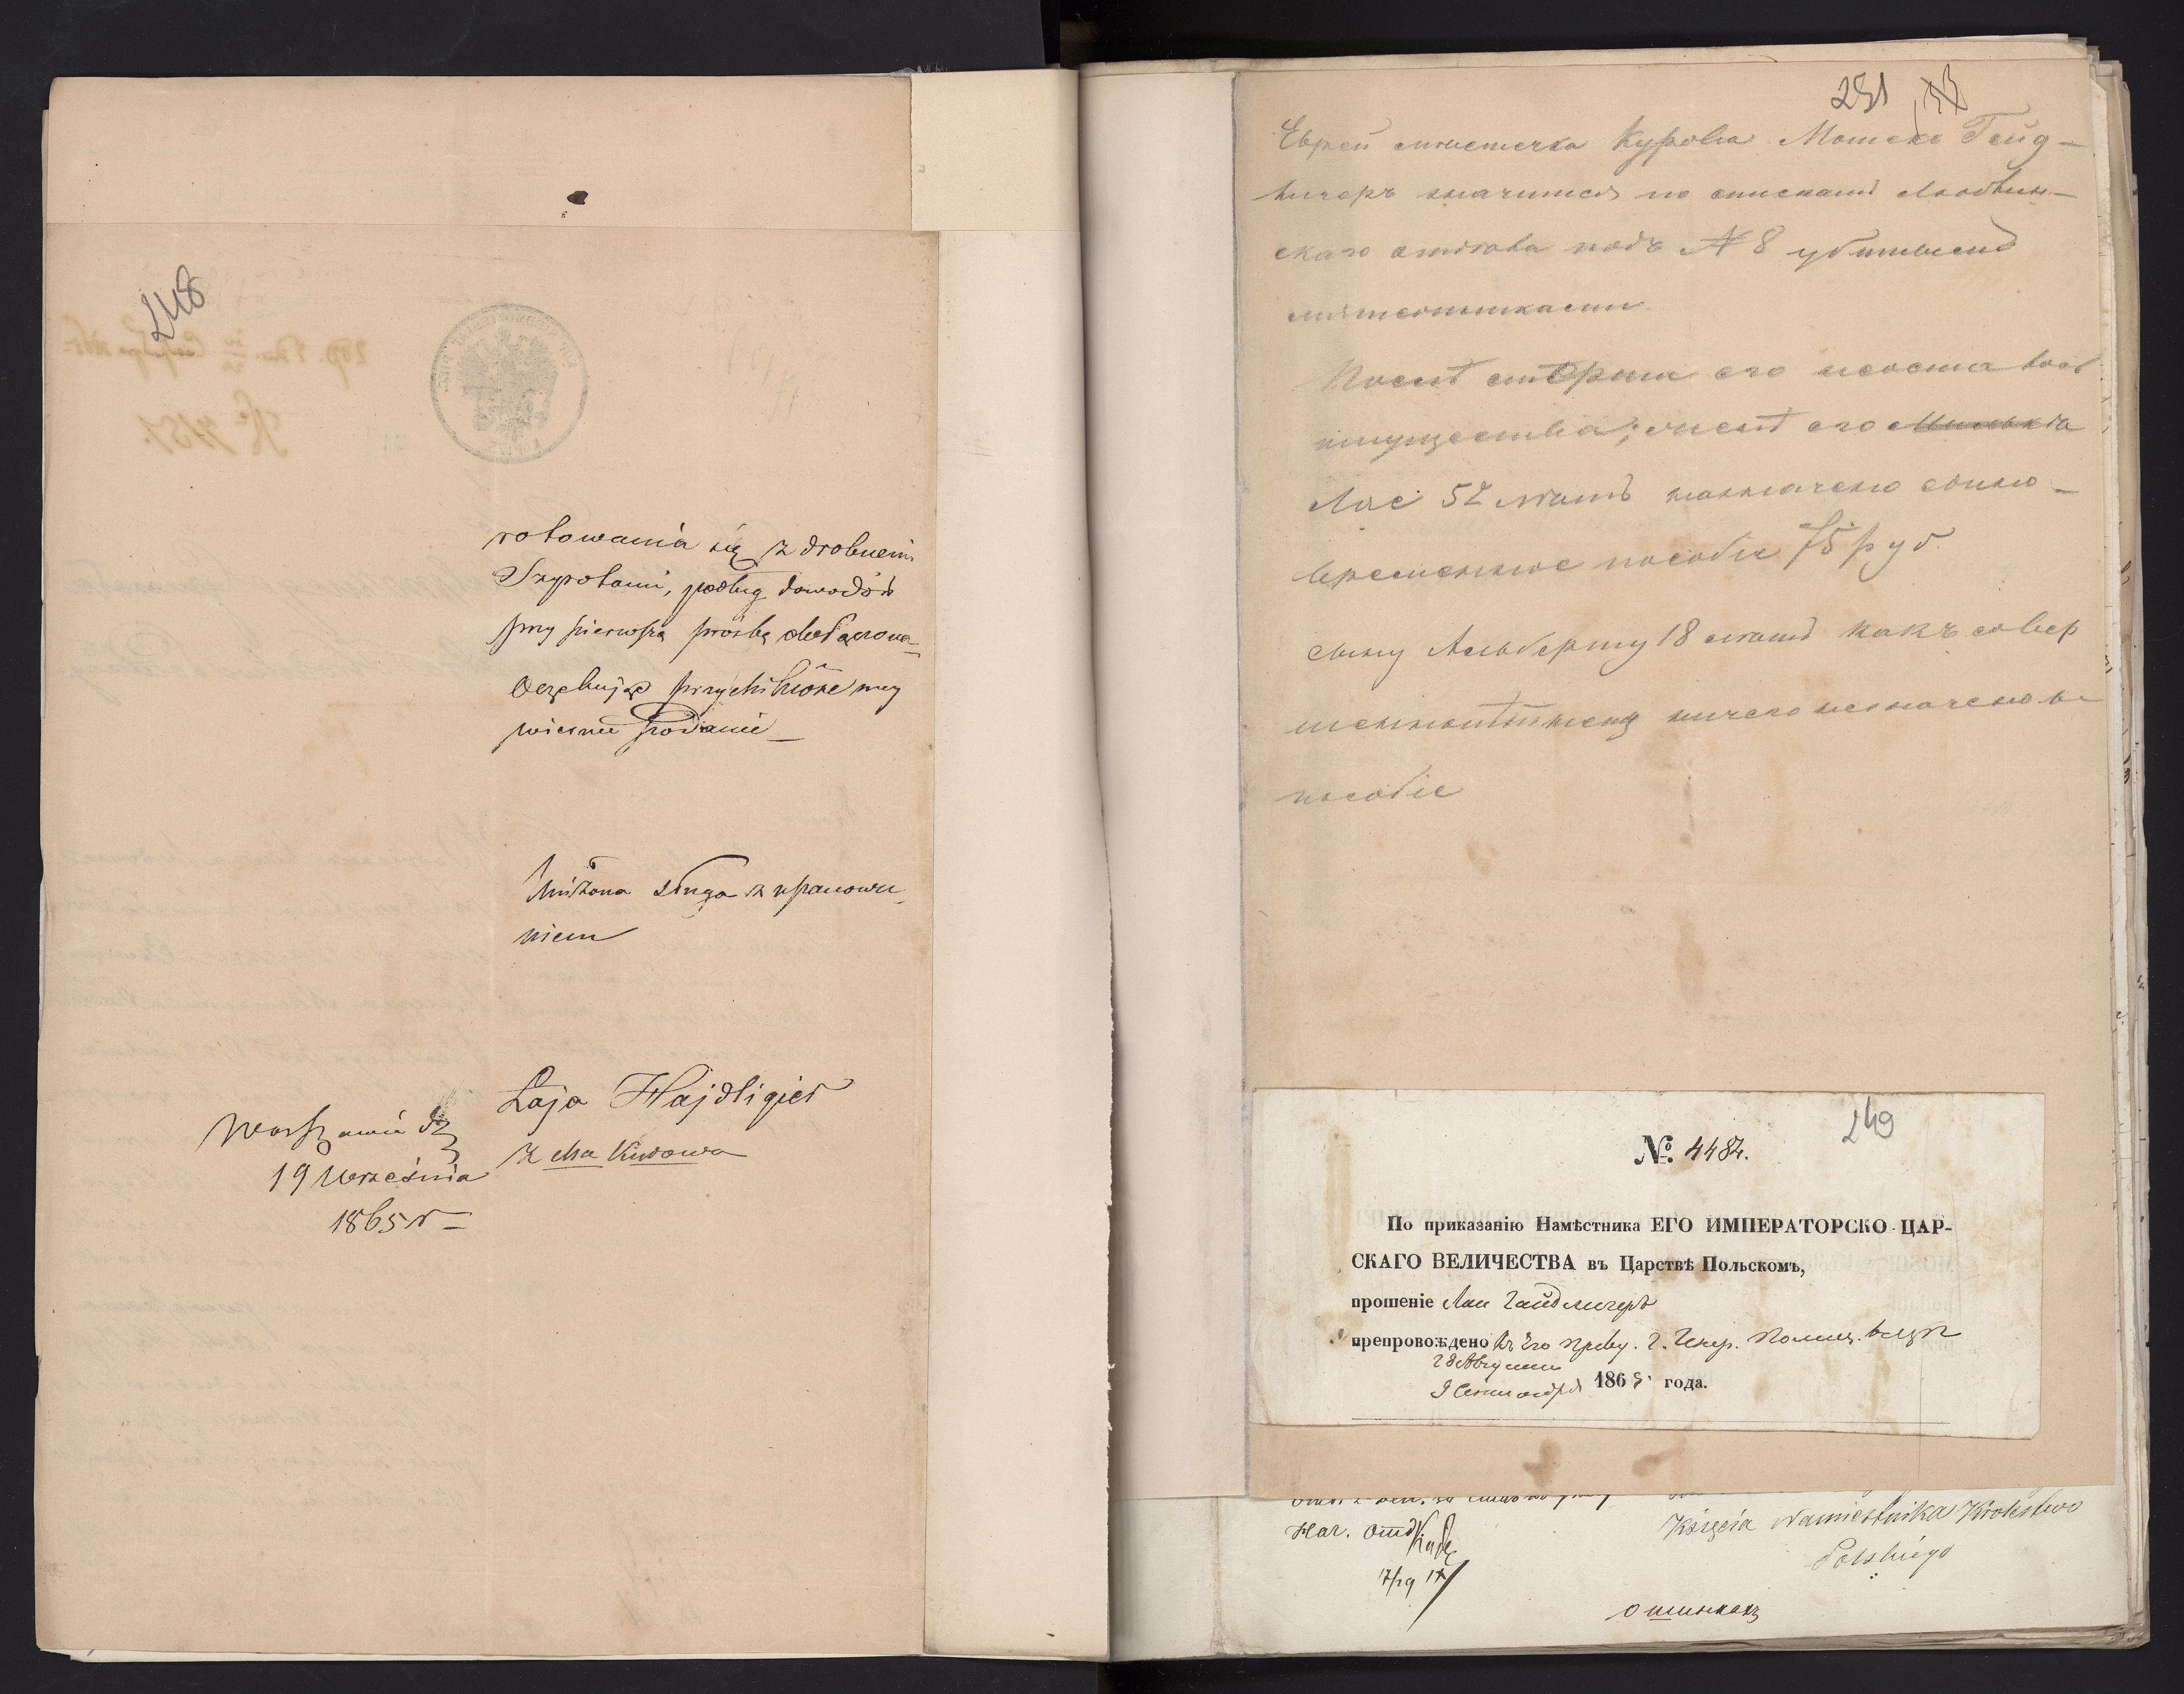 248
rotowania się z drobnemi
Syrotami, podług dowodów
przy pierwszą prośbę dołączone
Oczekując przychilnóné mey
wiernie podanie
Uniżona sługa z uszanowa-
niem
Laja Hajdligier
z Ma Kurowa
Warszawa d.
19 Września
1865 r
251
Еврей мѣстечка Курова Мошекъ Гейд-
лигеръ значится по спискамъ Люблин-
скаго отдѣла подъ № 8 убитымъ
мятежниками.
Послѣ смерти его неоста
имущества; женѣ его
Лаѣ 52 лѣтъ назначено едино-
временное пособіе 75 руб.
сыну Альберту 18 лѣтъ какъ совер
шеннолѣтнему ничего неназначено въ
пособіе
249
№. 4484.
По приказанію Намѣстника ЕГО ИМПЕРАТОРСКО-ЦАР-
СКАГО ВЕЛИЧЕСТВА въ Царствѣ Польскомъ,
прошеніе Лаи Гайдлигеръ
препровождено къ Его Превс. Г. Генер. Полиц. въ Ц П
28 Августа
9 Сентября 1865 года.
Нач. Отд.
17/29 IX
Księcia Namiestnika Krolestwa
Polskiego